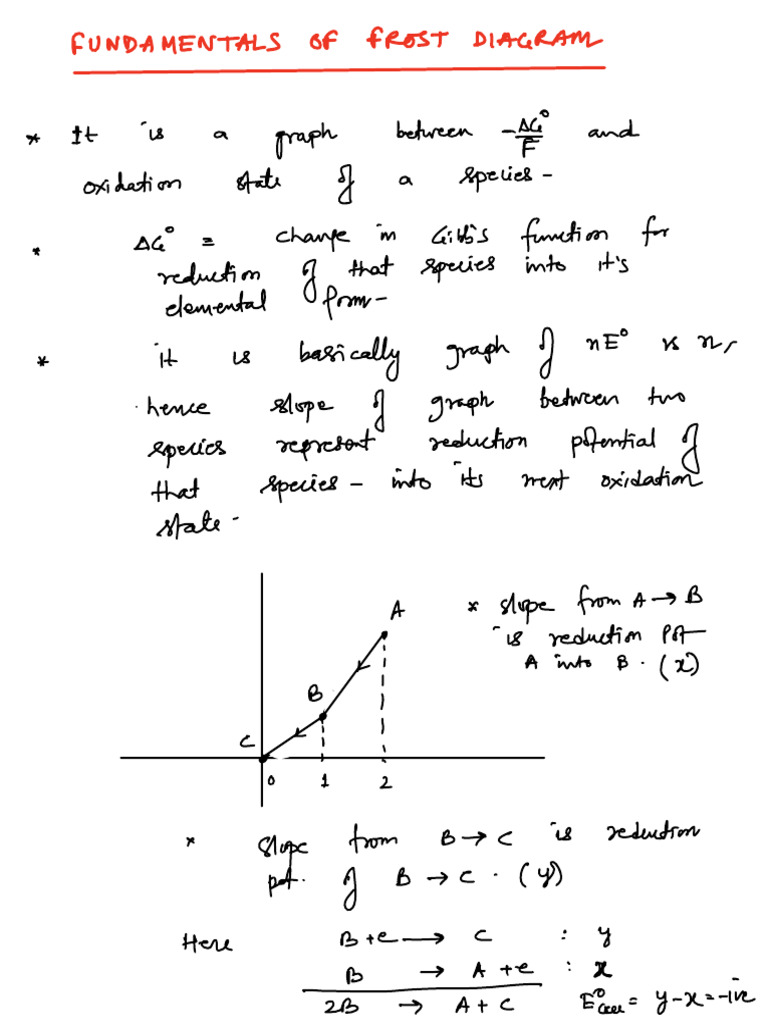 FUNDAMENTALS OF FROST DIAGRAM
* It is a graph between -ΔG°/F and
oxidation state of a species -
* ΔG° = change in Gibb's function for
reduction of that species into it's
elemental form -
* it is basically graph of nE° vs n,
hence slope of graph between two
species represent reduction potential of
that species - into its next oxidation
state -
A
* slope from A → B
is reduction pot
A into B . (x)
B
C
0 1 2
* slope from B → C is reduction
pot. of B → C . (y)
Here B + e → C : y
B → A + e : x
2B → A + C E°cell = y - x = -ive